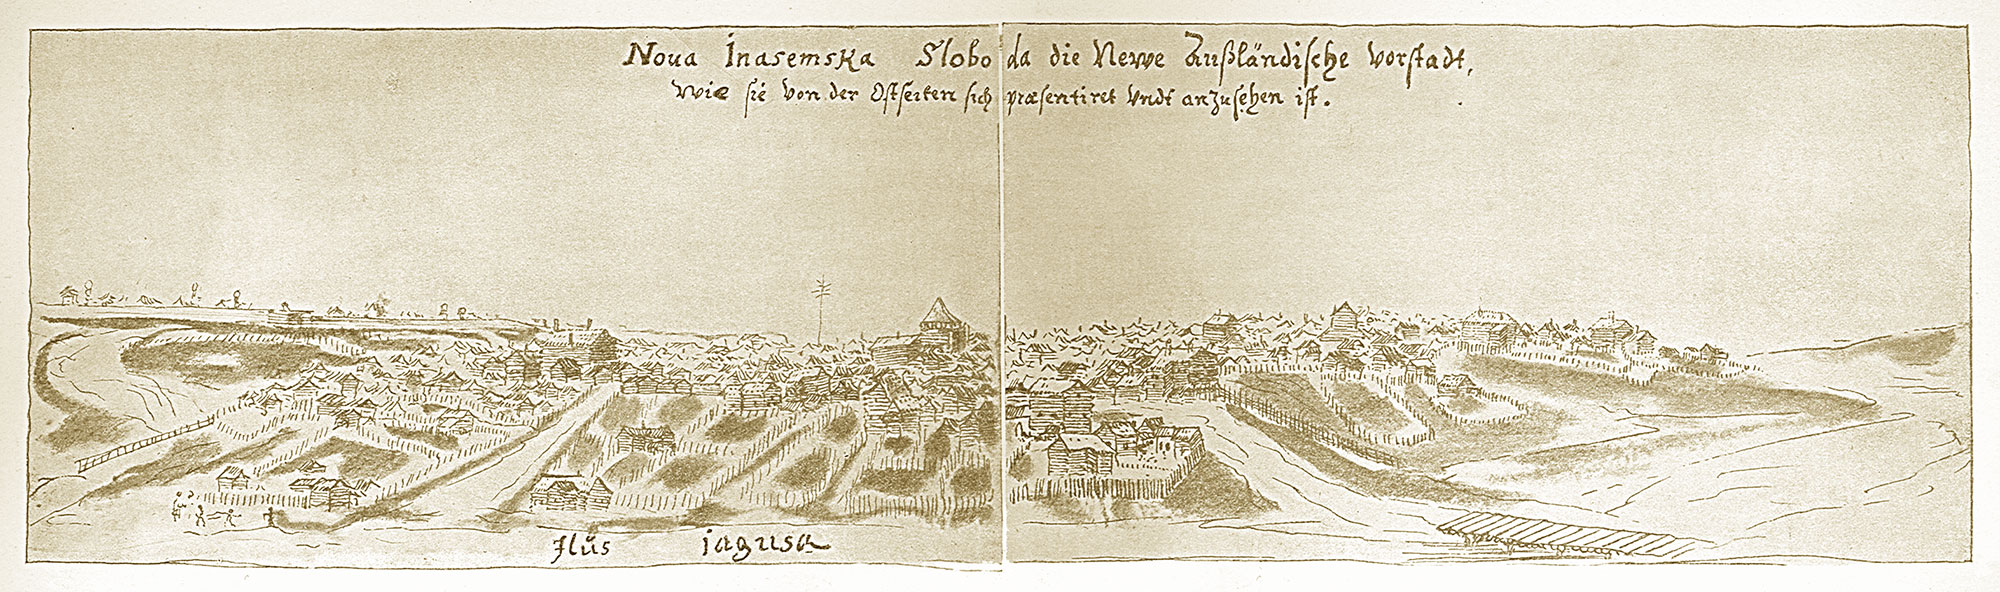 Noua Inasemska Sloboda die Newe Außländische vorstadt,
Wie sie von der Ostseiten sich præsentiret vndt anzusehen ist.
Flüs jagusa